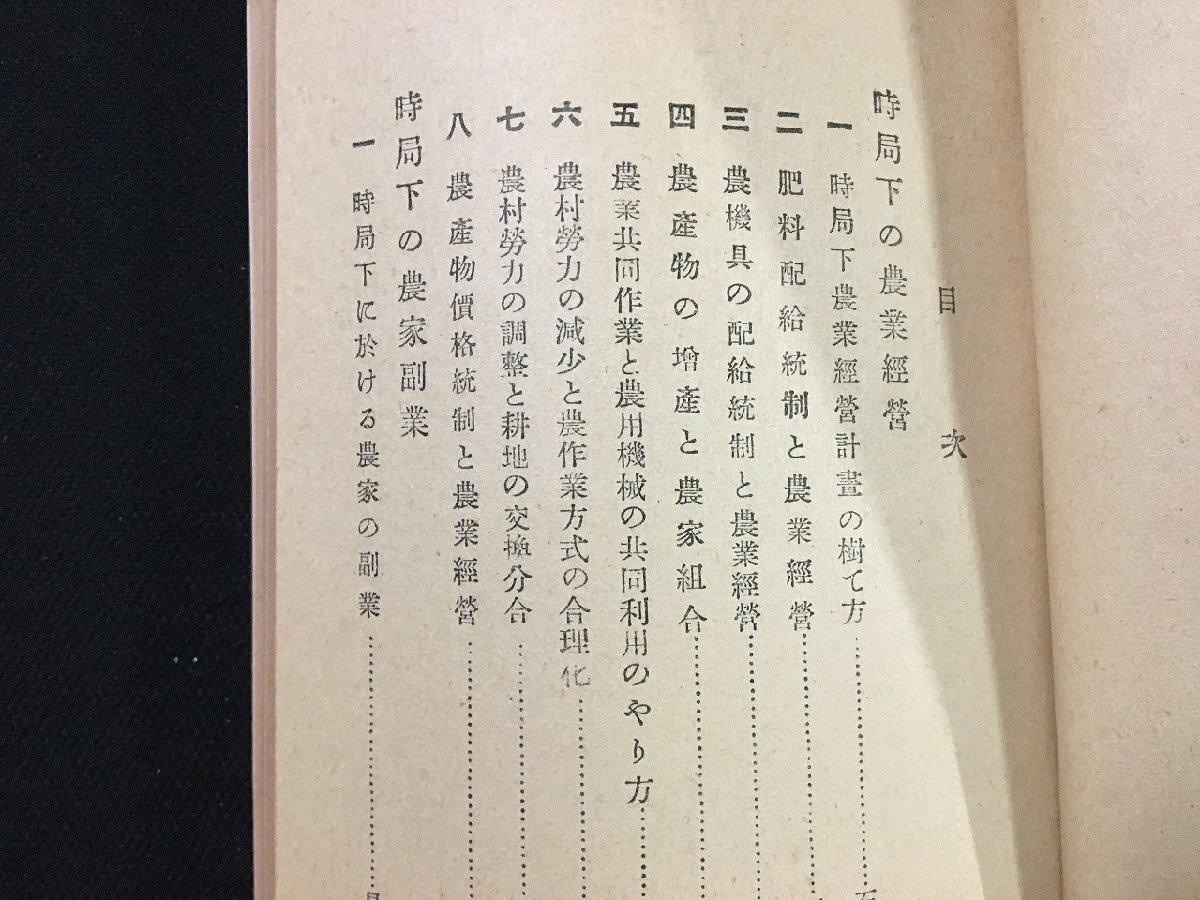 目次
時局下の農業經營
一 時局下農業經營計畫の樹て方
二 肥料配給統制と農業經營
三 農機具の配給統制と農業經營
四 農產物の增產と農家組合
五 農業共同作業と農用機械の共同利用のやり方
六 農村勞力の減少と農作業方式の合理化
七 農村勞力の調整と耕地の交換分合
八 農產物價格統制と農業經營
時局下の農家副業
一 時局下に於ける農家の副業